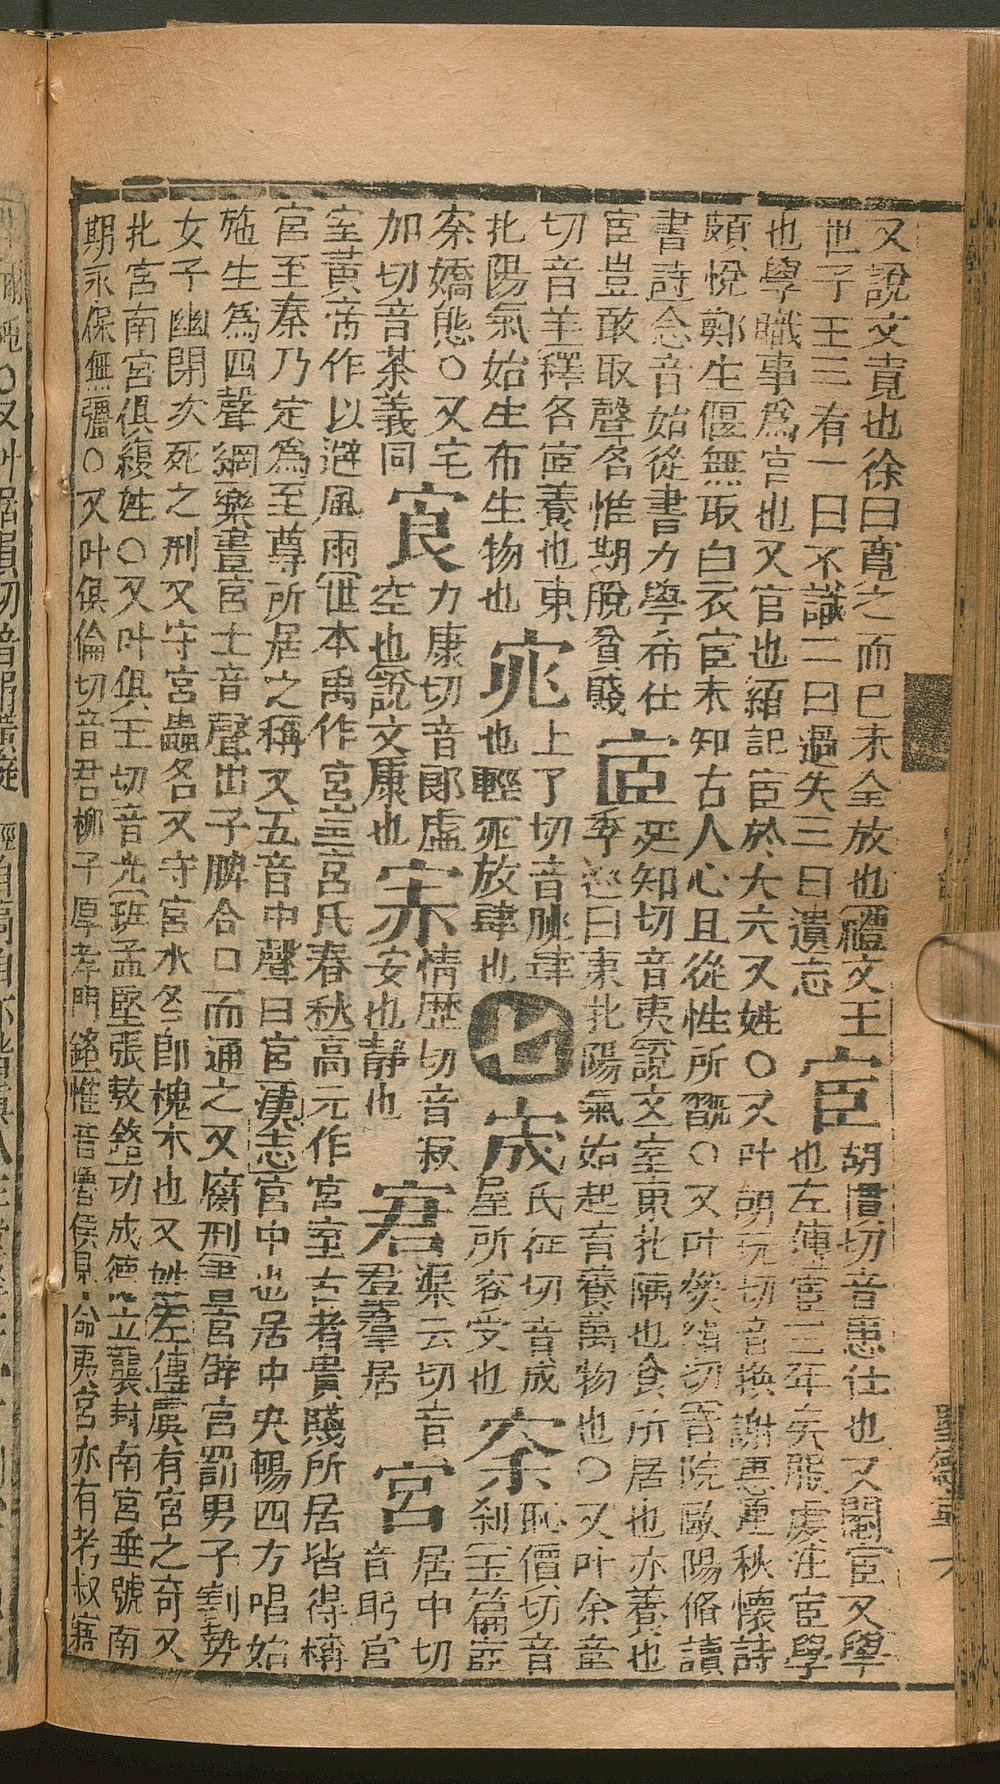 又說文責也徐曰寬之而已未全放也禮文王
世子王三有一曰不識二曰過失三曰遺忘
宦
胡慣切音患仕也又閹宦又學
也左傳宦三年矣服虔注宦學
也學職事爲官也又官也禮記宦於大夫又姓〇又叶胡玩切音換謝惠連秋懷詩
頗悅鄭生偃無取白衣宦未知古人心且從性所翫〇又叶熒絹切音院歐陽脩讀
書詩念昔始從書力學希仕
宦豈敢取聲名惟期脫貧賤
宧
延知切音夷說文室東北隅也食所居也亦養也
李巡曰東北陽氣始起育養萬物也〇又叶余章
切音羊釋名宧養也東
北陽氣始生布生物也
窕
上了切音朓肆
也輕窕放肆也
七
宬
氏征切音成
屋所容受也
䆛
恥價切音
刹玉篇䆛
㮈嬌態〇又宅
加切音茶義同
㝗
力康切音郎虛
空也說文康也
宗
情歷切音寂
安也靜也
宭
渠云切音
羣羣居
宮
居中切
音躬宮
室黃帝作以避風雨世本禹作宮三宮氏春秋高元作宮室古者貴賤所居皆得稱
宮至秦乃定爲至尊所居之稱又五音中聲曰宮漢志宮中也居中央暢四方唱始
施生爲四聲綱樂書宮土音聲出于脾合口而通之又腐刑書呂宮辟宮罰男子割勢
女子幽閉次死之刑又守宮蟲名又守宮水名卽槐木也又姓左傳虞有宮之奇又
北宮南宮俱複姓〇又叶俱王切音光班孟堅張敖銘功成德立襲封南宮垂號南
期永保無彊〇又叶俱倫切音君柳子厚孝門銘惟昔魯侯見命夷宮亦有考叔寤